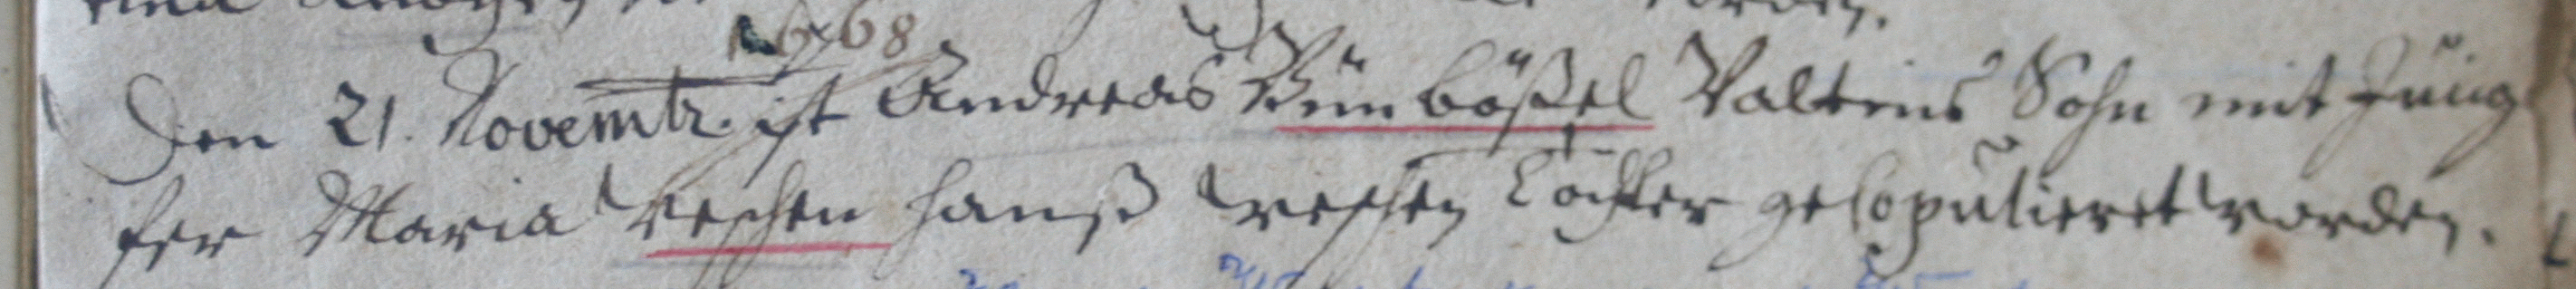 1668
Den 21. Novembr. ist Andreas Bÿnbößel Valtens Sohn mit Jung
fer Maria Reschen Hanß Reschen Tochter gecopulieret worden.